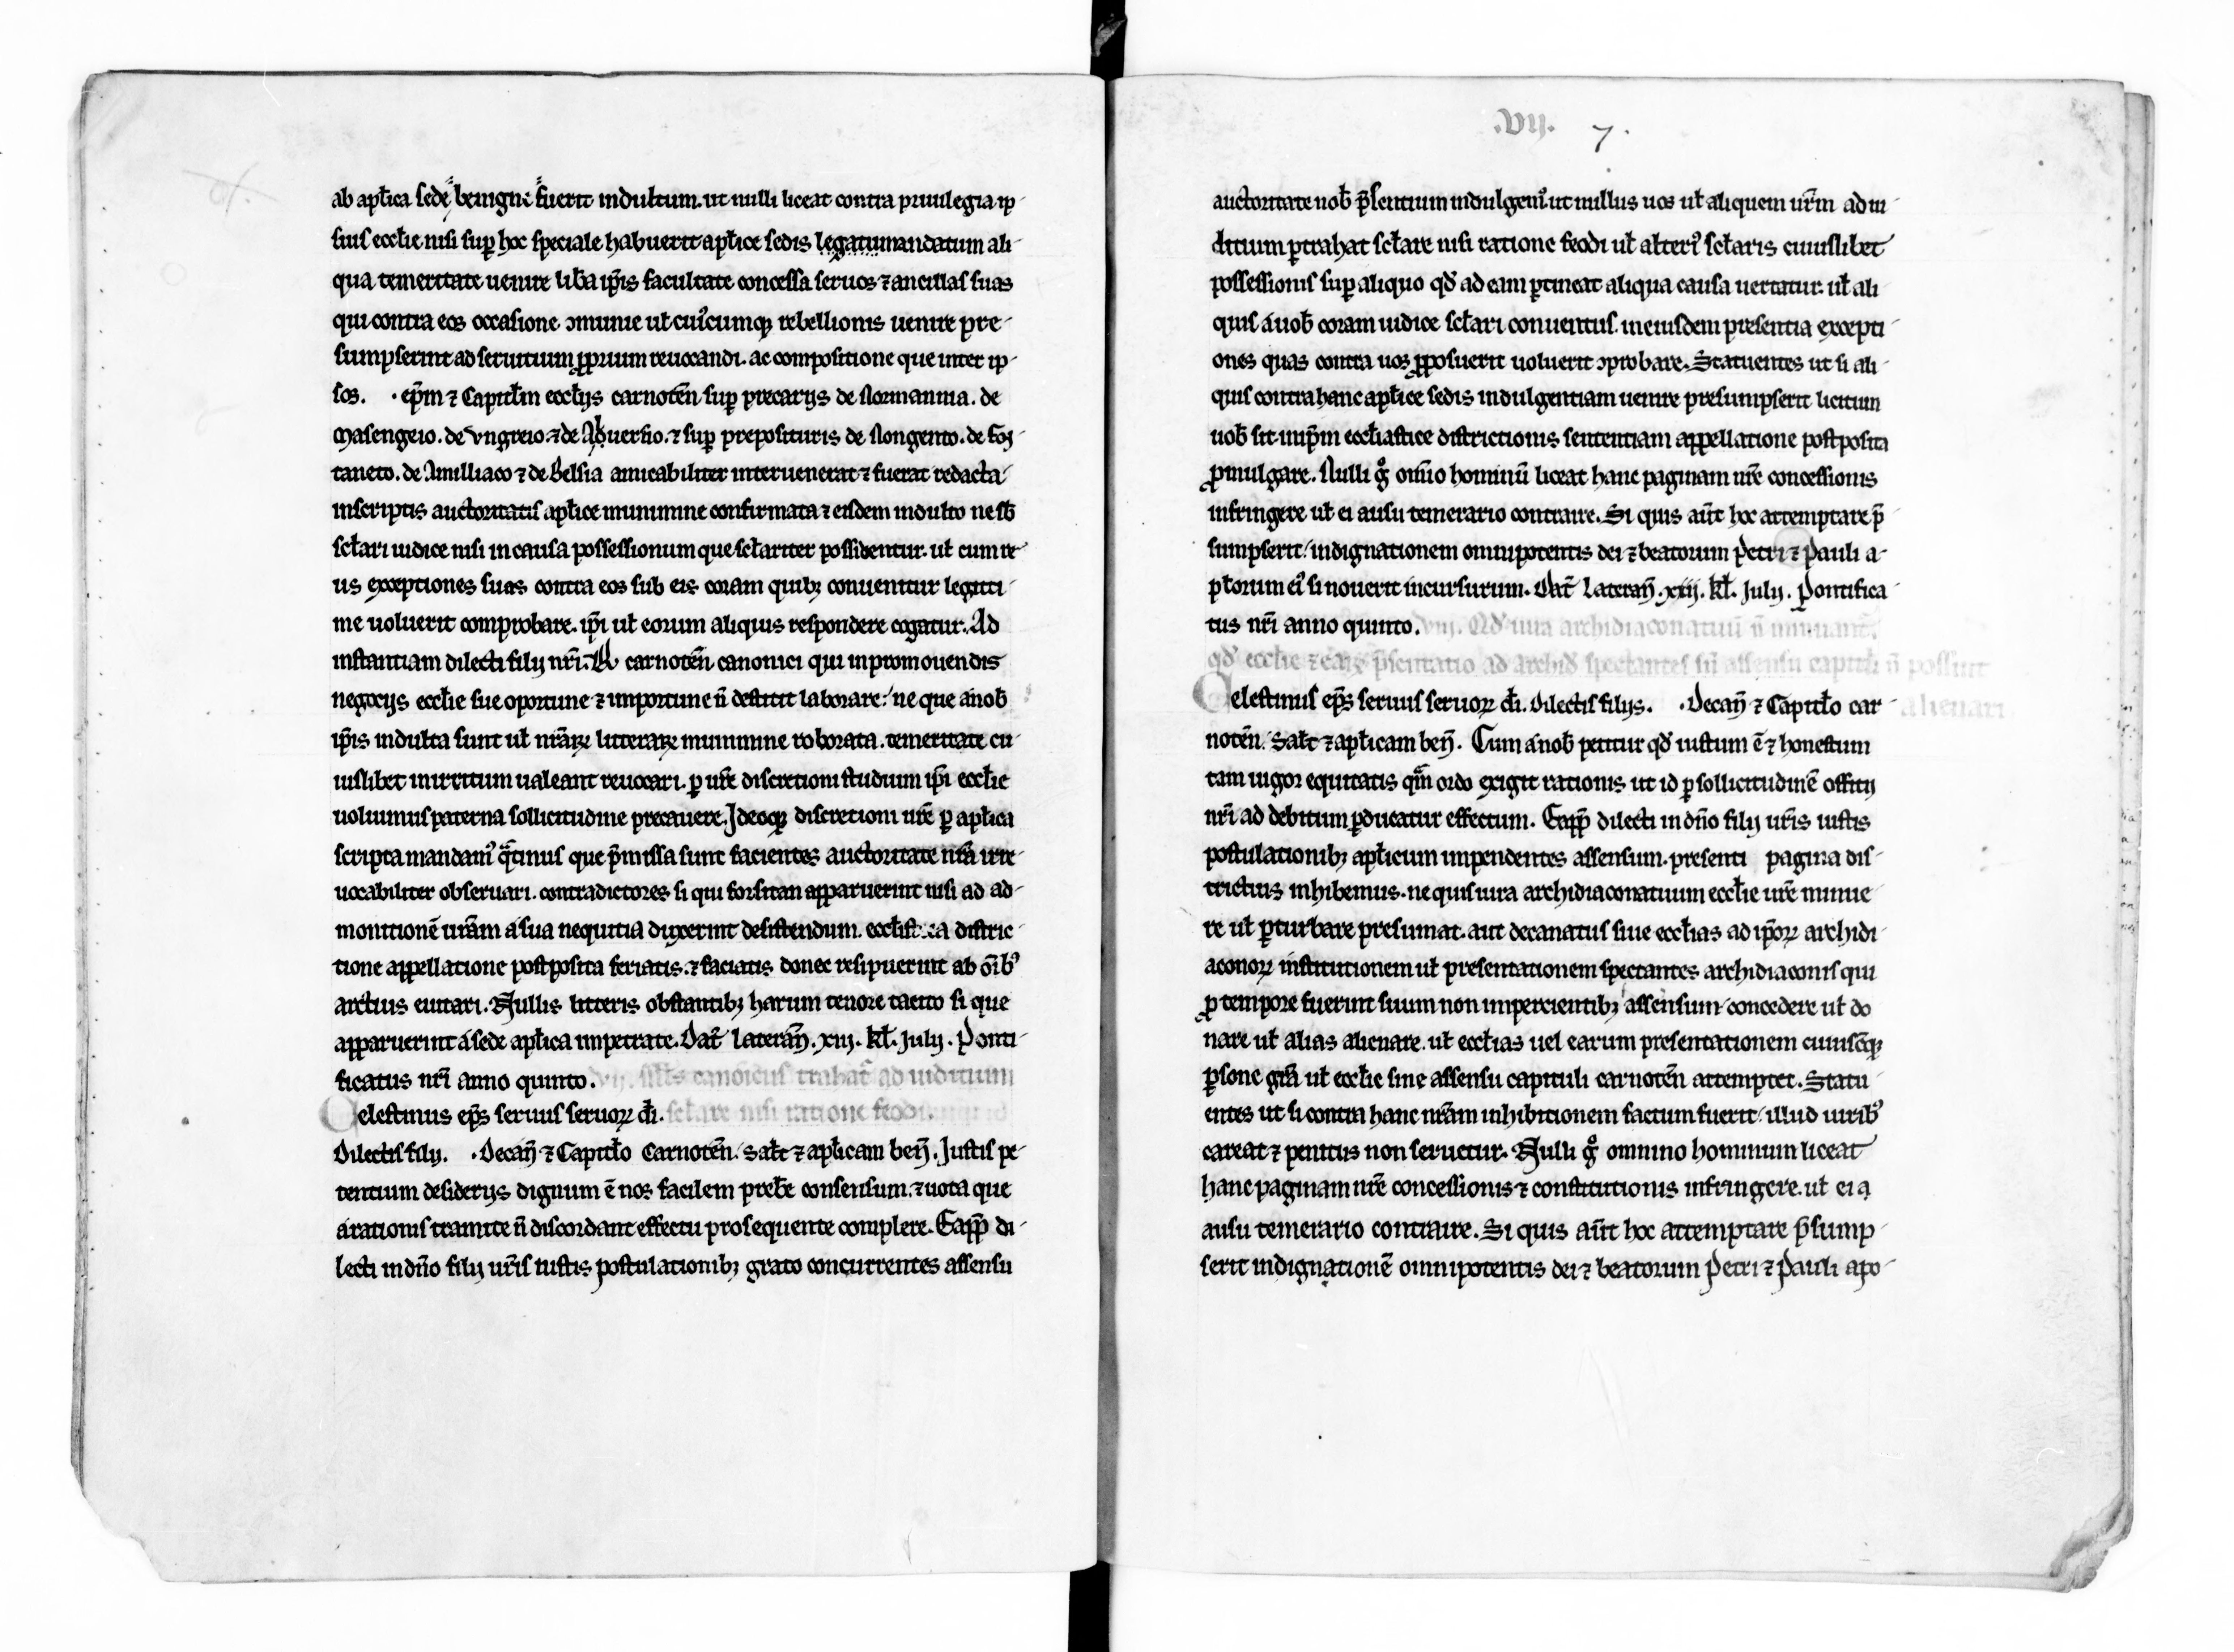 ab apl̃ica sede benigne fuerit indultum. ut nulli liceat contra priuilegia ip-
sius eccl̃ie nisi sup̱ hoc speciale habuerit apl̃ice sedis legatumandatum ali-
qua temeritate uenire lib̃a ip̃is facultate concessa seruos ⁊ ancillas suas
qui contra eos occasione ↄmunie ul̃ cuiꝰcumqꝫ rebellionis uenire pre-
sumpserint ad seruitium ꝓprium reuocandi. ac compositione que inter ip-
sos. · ep̃m ⁊ Capitl̃m eccl̃ijs carnoteñ sup̱ precarijs de Normannia. de
Masengeio. de vngreio. ⁊ de Aduersio. ⁊ sup̱ preposituris de Nongento. de fon-
taneto. de Amilliaco ⁊ de Belsia amicabiliter interuenerat ⁊ fuerat redacta
inscriptis auctoritatis apl̃ice munimine confirmata ⁊ eisdem indulto ne sb̃
scl̃ari iudice nisi in causa possessionum que scl̃ariter possidentur. ul̃ cum re-
us exceptiones suas contra eos sub eis coram quibꝫ conuenitur legitti-
me uoluerit comprobare. ip̃i ul̃ eorum aliquis respondere cogatur. Ad
instantiam dilecti filij nr̃i. carnoteñ canonici qui in promouendis
negocijs eccl̃ie sue oportune ⁊ importune ñ destitit laborare. ne que a nob̃
ip̃is indulta sunt ul̃ nr̃aꝝ litteraꝝ munimine roborata. temeritate cu-
iuslibet in irritum ualeant reuocari. ꝑ ur̃e discretioni studium ip̃i eccl̃ie
uoluimus paterna sollicitudine precauere. Ideoqꝫ discretioni ur̃e ꝑ apl̃ica
scripta mandamꝰ q̃tinus que p̃missa sunt facientes auctoritate nr̃a irre-
uocabiliter obseruari. contradictores si qui forsitan apparuerint nisi ad ad-
monitionẽ ur̃am a sua nequitia duxerint desistendum. eccl̃istica distric-
tione appellatione postposita feriatis. ⁊ faciatis donec resipuerint ab õibꝰ
arctius euitari. Nullis litteris obstantibꝫ harum tenore tacito si que
apparuerint a sede apl̃ica impetrate. Dat̃ Laterañ. xiij. kl̃. Julij. Ponti-
ficatus nr̃i anno quinto. canoicus trahat̃ ad iuditium
Celestinus ep̃s seruus seruoꝝ d̃i. scl̃are nisi ratione feodi.
Dilectis filij. · Decañ ⁊ Capitl̃o Carnoteñ. Sal̃t ⁊ apl̃icam beñ. Justis pe-
tentium desiderijs dignum ẽ nos facilem preb̃e consensum. ⁊ uota que
a rationis tramite ñ discordant effectu prosequente complere. Eapp̃ di-
lecti in dño filij ur̃is iustis postulationibꝫ grato concurrentes assensu
.vij. 7.
auctoritate uob̃ p̃sentium indulgemꝰ ut nullus uos ul̃ aliquem ur̃m ad iu-
ditium ꝑtrahat scl̃are nisi ratione feodi ul̃ alteriꝰ scl̃aris cuiuslibet
possessionis sup̱ aliquo qd̃ ad eam ꝑtineat aliqua causa uertatur. ul̃ ali-
quis a uob̃ coram iudice scl̃ari conuentus. in eiusdem presentia excepti-
ones quas contra uos ꝓposuerit uoluerit ↄprobare. Statuentes ut si ali-
quis contra hanc apl̃ice sedis indulgentiam uenire presumpserit licitum
uob̃ sit in ip̃m eccl̃iastice districtionis sententiam appellatione postposita
ꝓmulgare. Nulli g̊ om̃io hominũ liceat hanc paginam nr̃e concessionis
infringere ul̃ ei ausu temerario contraire. Si quis aũt hoc attemptare p̃
sumpserit. indignationem omnipotentis dei ⁊ beatorum Petri ⁊ Pauli a-
pl̃orum eiꝰ se nouerit incursurum. Dat̃ Laterañ. xiij. kl̃. Julij. Pontifica-
tus nr̃i anno quinto. viij. Qd̃ iura archidiaconatuũ ñ minuant̃.
qd̃ eccl̃ie ⁊ eaꝝ p̃sentatio ad archid̃ spectantes sñ assensu capitl̃i ñ possint
Celestinus ep̃s seruus seruoꝝ d̃i. Dilectis filijs. · Decañ ⁊ Capitl̃o car- alienari
noteñ. Sal̃t ⁊ apl̃icam beñ. Cum a nob̃ petitur qd̃ iustum ẽ ⁊ honestum
tam uigor equitatis qm̃ ordo exigit rationis ut id ꝑ sollicitudinẽ offitij
nr̃i ad debitum ꝑducatur effectum. Eapp̃ dilecti in dño filij ur̃is iustis
postulationibꝫ apl̃icum impendentes assensum. presenti pagina dis-
trictius inhibemus. ne quis iura archidiaconatuum eccl̃ie ur̃e minue-
re ul̃ ꝑturbare presumat. aut decanatus siue eccl̃ias ad ip̃oꝝ archidi-
aconoꝝ institutionem ul̃ presentationem spectantes archidiaconis qui
ꝓ tempore fuerint suum non impercientibꝫ assensum concedere ul̃ do
nare ul̃ alias alienare. ul̃ eccl̃ias uel earum presentationem cuiuscũqꝫ
ꝑsone gr̃a ul̃ eccl̃ie sine assensu capituli carnoteñ attemptet. Statu-
entes ut si contra hanc nr̃am inhibitionem factum fuerit. illud uiribꝰ
careat ⁊ penitus non seruetur. Nulli g̊ omnino hominum liceat
hanc paginam nr̃e concessionis ⁊ constitutionis infringere. ul̃ ei
ausu temerario contraire. Si quis aũt hoc attemptare p̃sump-
serit indignationẽ omnipotentis dei ⁊ beatorum Petri ⁊ Pauli apo-